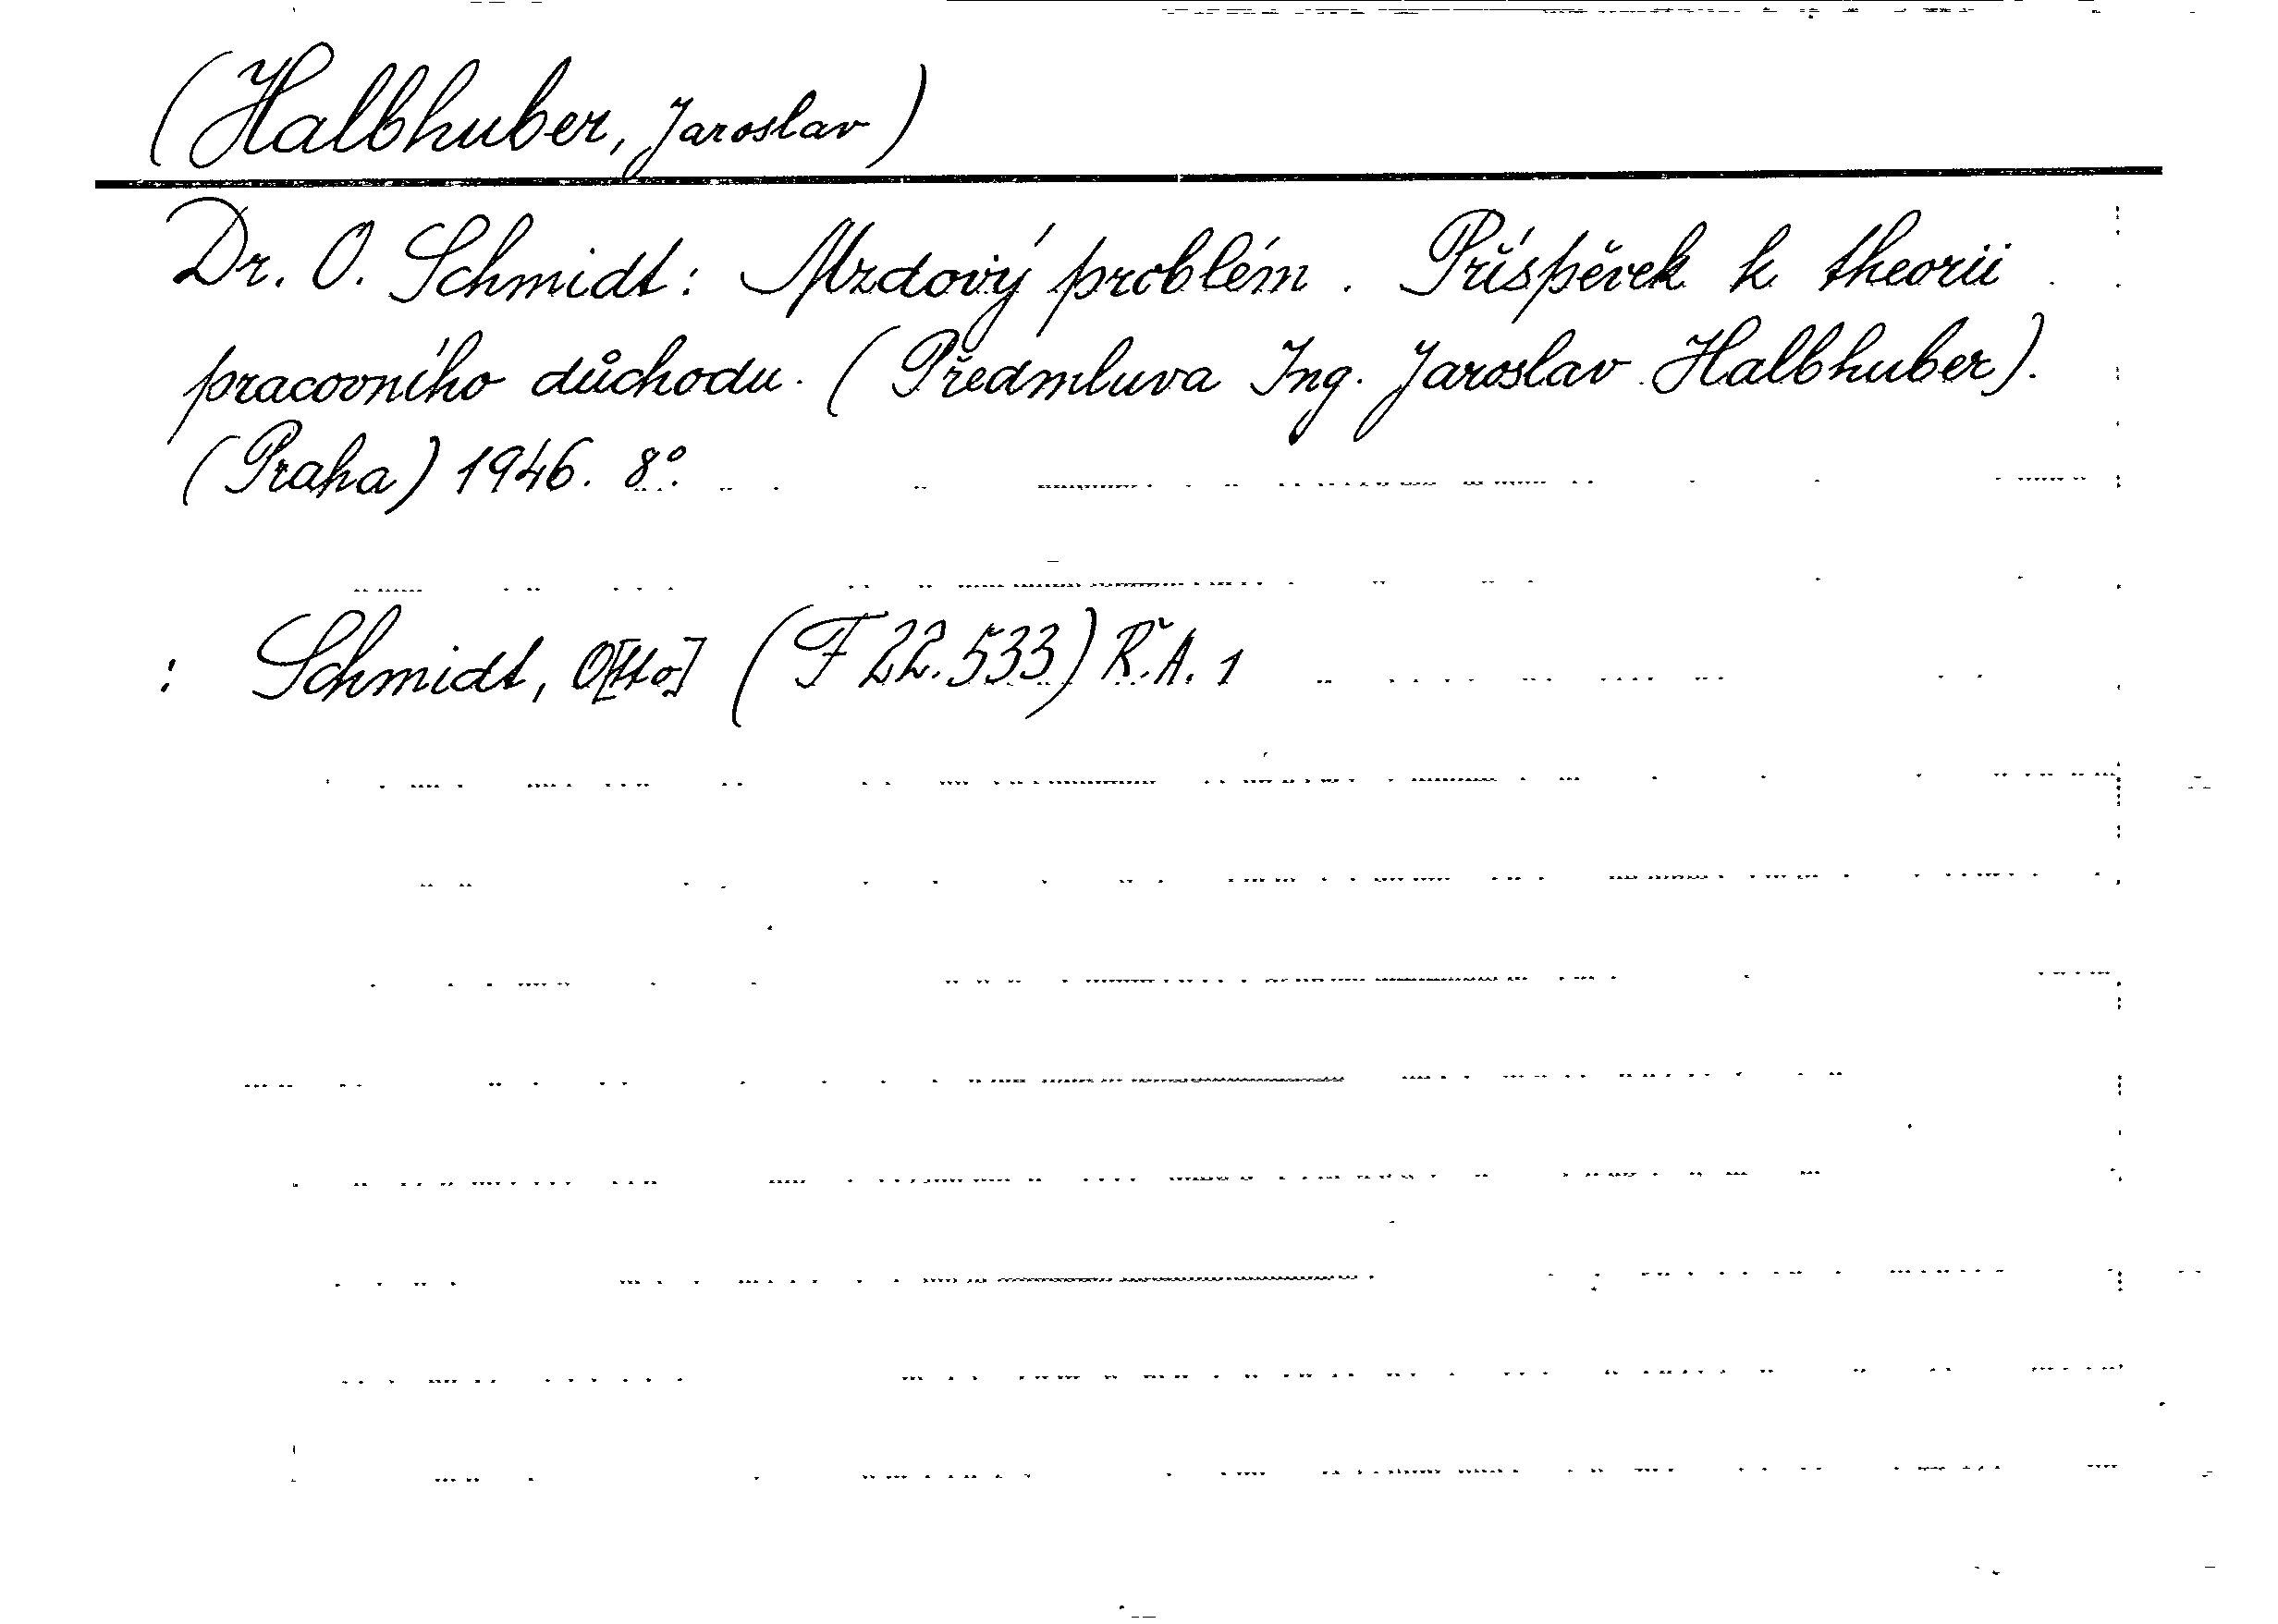 (Halbhuber, Jaroslav)
Dr. O. Schmidt: Mzdový problém. Příspěvek k theorii
pracovního důchodu. (Předmluva Ing. Jaroslav Halbhuber).
(Praha) 1946. 8°.
: Schmidt, O[tto] (F 22.533) Ř.A. 1